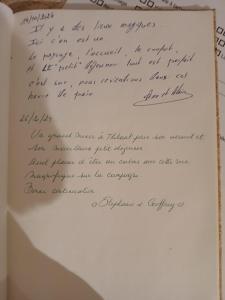 Il y a des lieux magiques
Ici c'en est un
Le paysage, l'accueil, le confort,
Et le "petit" déjeuner tout est parfait
c'est sur, nous reviendrons dans cet
havre de paix
Un grand merci à Thibaut pour son accueil et
son succulent petit déjeuner
Quel plaisir d'être en cette vue
magnifique sur la campagne.
Bonne continuation
Stéphanie & Geoffrey